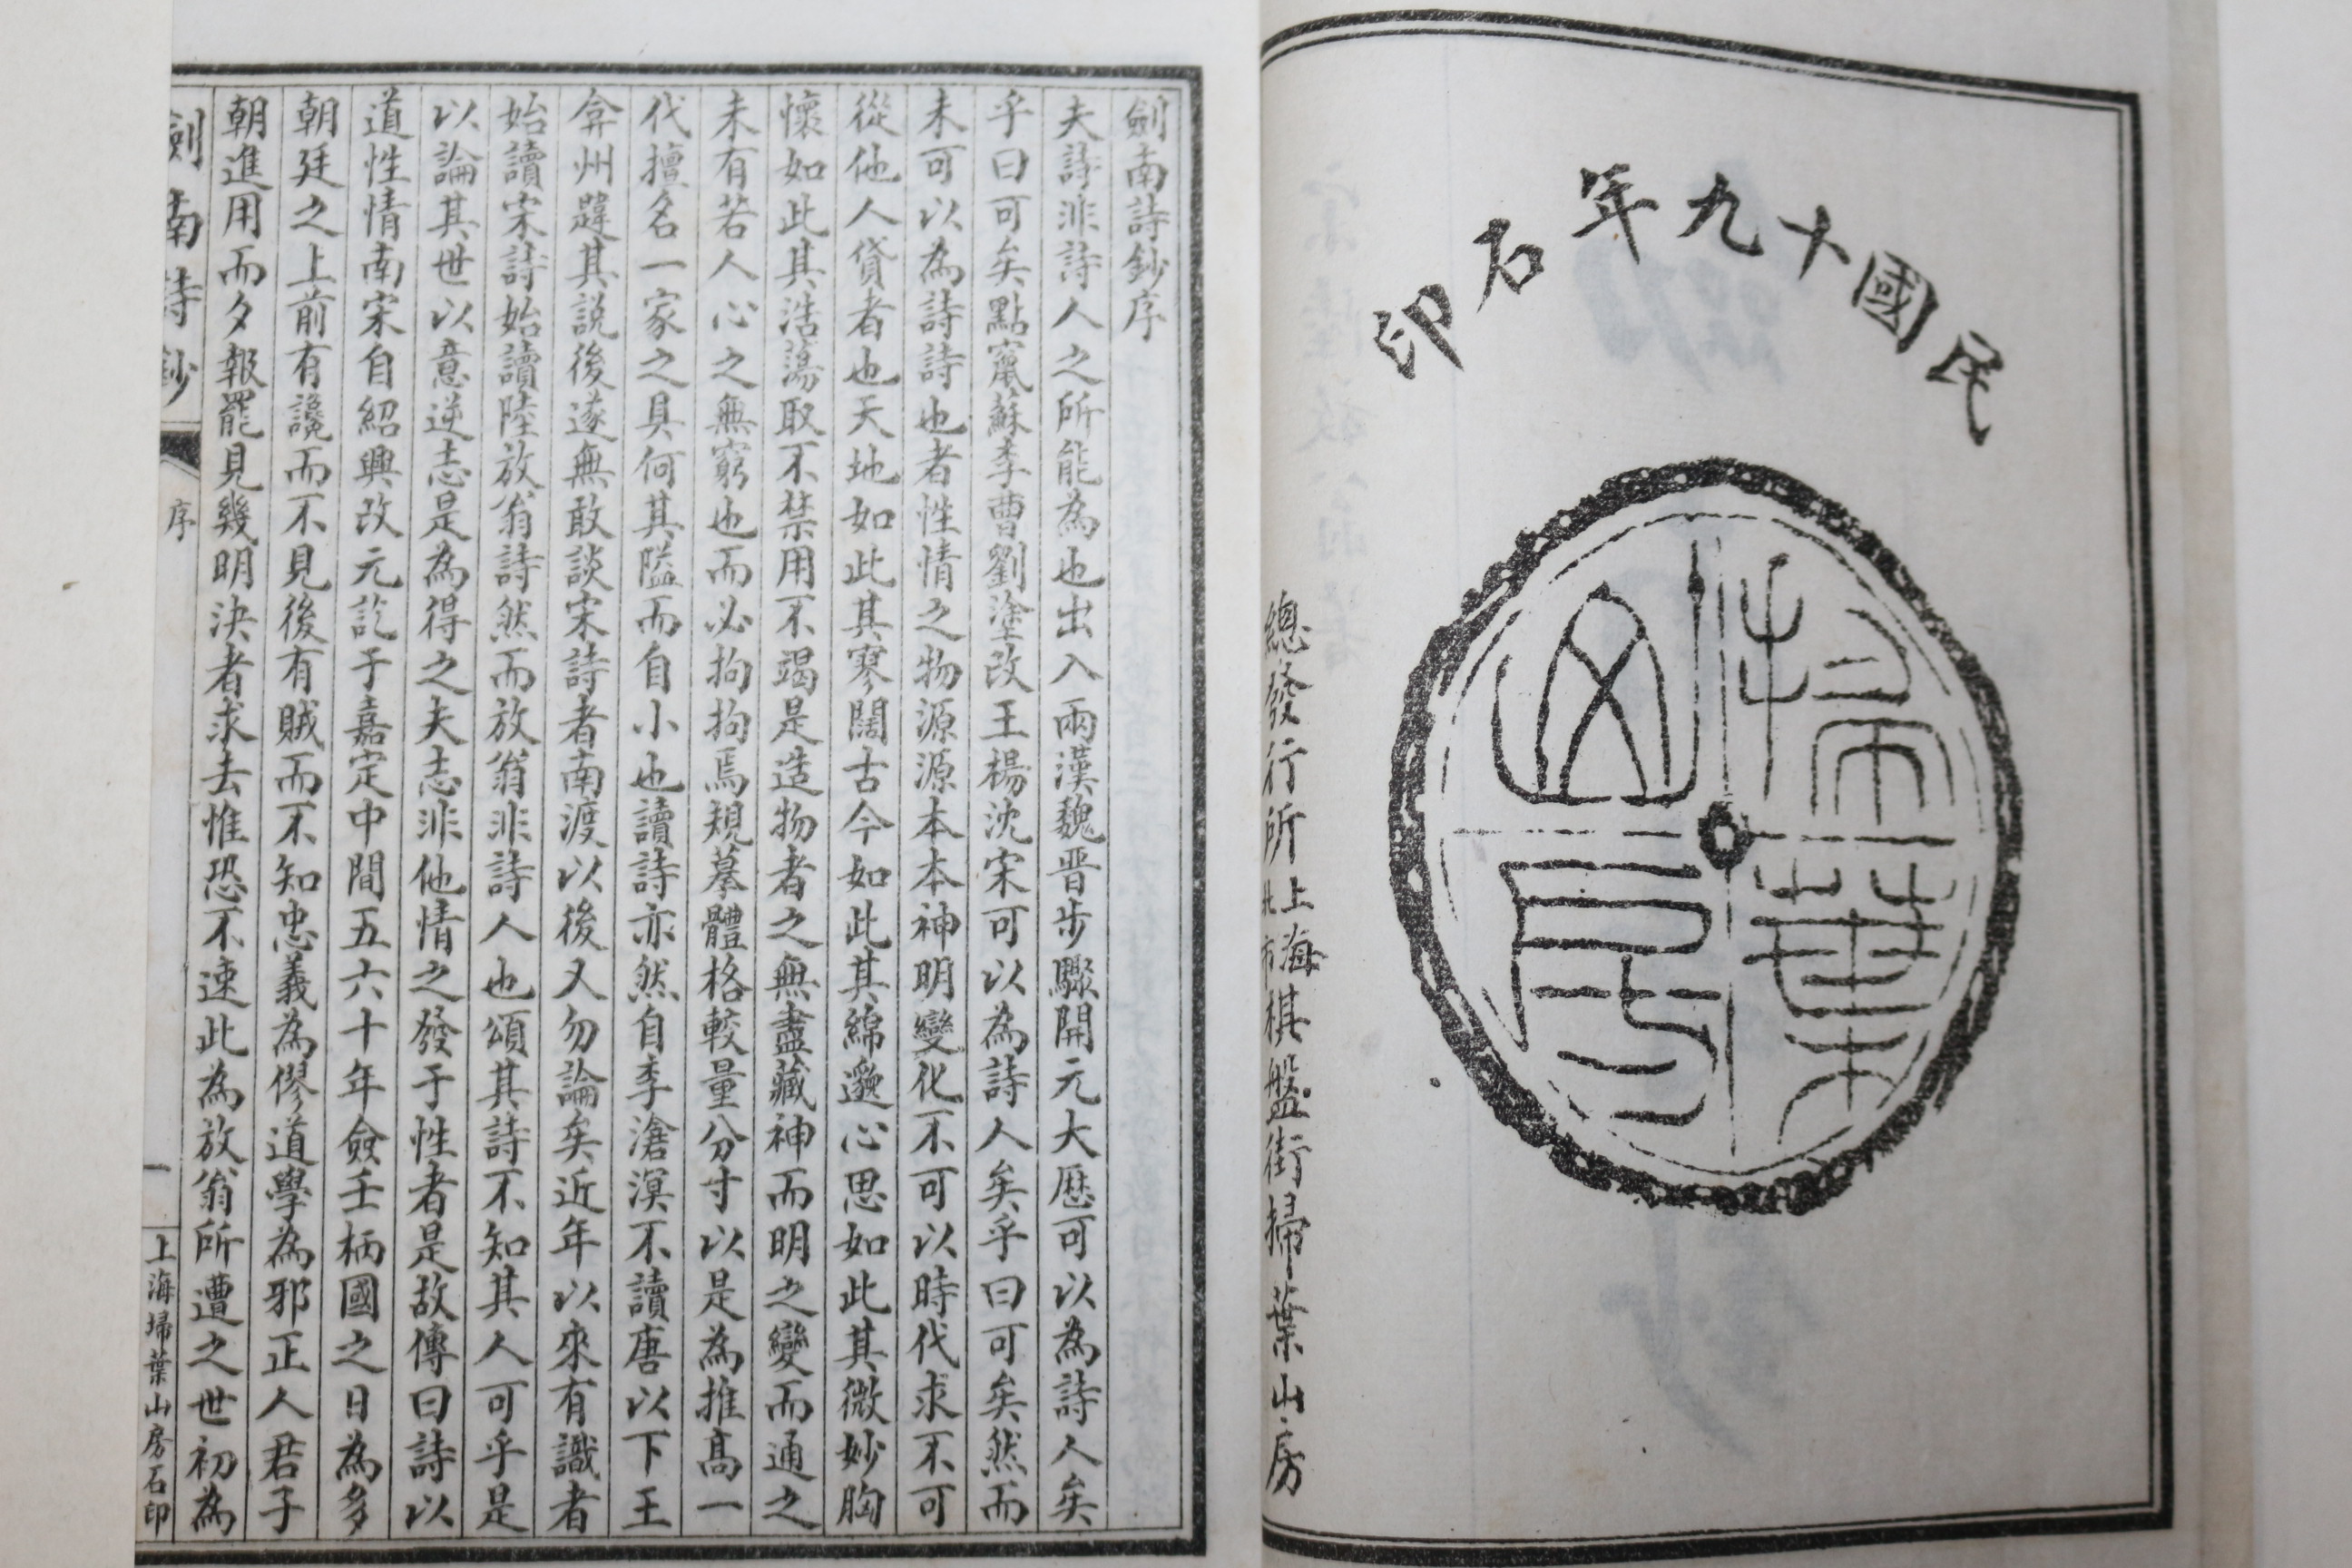 民國十九年石印
掃葉
山房
總發行所上海北市棋盤街掃葉山房
劍南詩鈔序
夫詩非詩人之所能為也出入兩漢魏晋步驟開元大歷可以為詩人矣
乎曰可矣點竄蘇李曹劉塗改王楊沈宋可以為詩人矣乎曰可矣然而
未可以為詩詩也者性情之物源源本本神明變化不可以時代求不可
從他人貸者也天地如此其寥闊古今如此其綿邈心思如此其微妙胸
懷如此其浩蕩取不禁用不竭是造物者之無盡藏神而明之變而通之
未有若人心之無窮也而必拘拘焉規摹體格較量分寸以是為推高一
代擅名一家之具何其隘而自小也讀詩亦然自李滄溟不讀唐以下王
弇州韙其説後遂無敢談宋詩者南渡以後又勿論矣近年以來有識者
始讀宋詩始讀陸放翁詩然而放翁非詩人也頌其詩不知其人可乎是
以論其世以意逆志是為得之夫志非他情之發于性者是故傳曰詩以
道性情南宋自紹興改元訖于嘉定中間五六十年僉壬柄國之日為多
朝廷之上前有讒而不見後有賊而不知忠義為僇道學為邪正人君子
朝進用而夕報罷見幾明決者求去惟恐不速此為放翁所遭之世初為
劍南詩鈔
序
一
上海埽葉山房石印